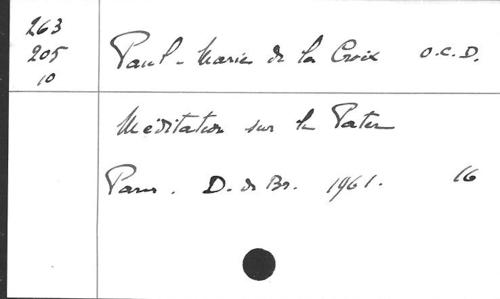 263
205
10
Paul-Marie de la Croix O.C.D.
Méditation sur le Pater
Paris. D. de Br. 1961. 16